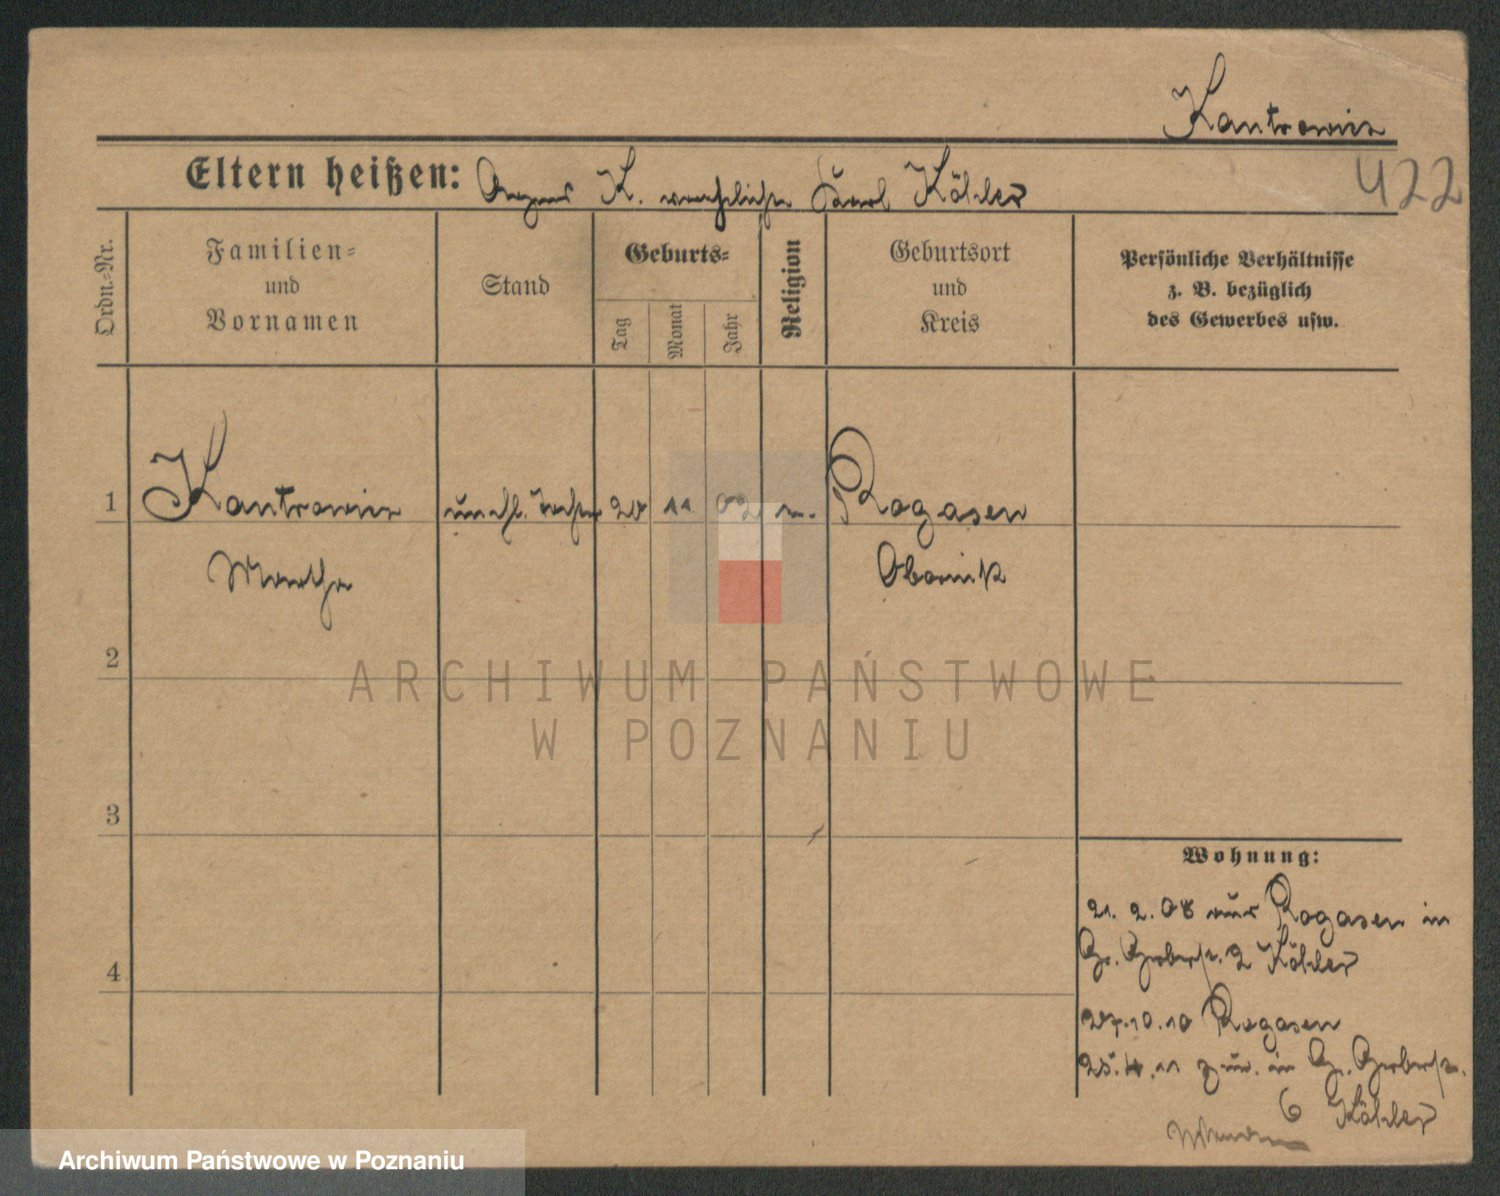 Kantrowicz
422
Eltern heißen: Agnes K. verehelichte Karl Köhler
Ordn.-Nr.
Familien-
und
Vornamen
Stand
Geburts-
Tag
Monat
Jahr
Religion
Geburtsort
und
Kreis
Persönliche Verhältnisse
z. B. bezüglich
des Gewerbes usw.
1 Kantrowicz unehl. 20 11 02 Rogasen
Martha Obornik
2
3
4
ARCHIWUM PAŃSTWOWE
W POZNANIU
Wohnung:
21. 2. 08 aus Rogasen in
Gr. Gerberstr. 2 Köhler
27.10.10 Rogasen
25.4.11 zur. in Gr. Gerberstr.
6 Köhler
Archiwum Państwowe w Poznaniu